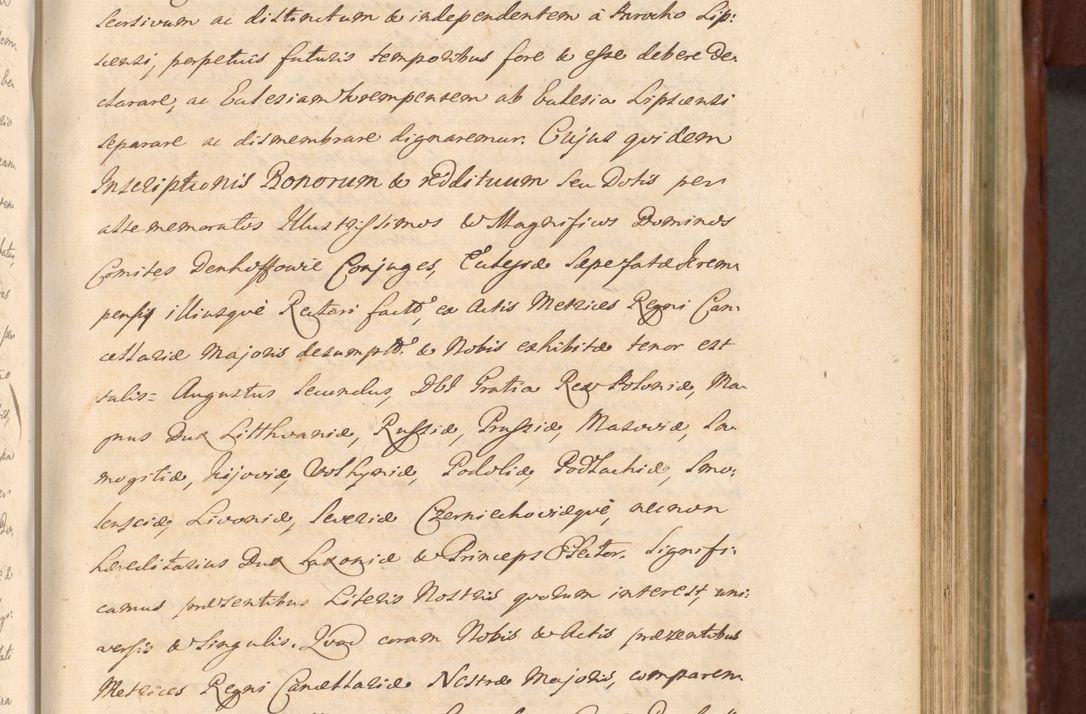 seorsivum ac distinctum & independentem à Parocho Lip:
scensi, perpetuis futuris temporibus fore & esse debere De.
clarare, ac Ecclesiam Krempensem ab Ecclesia Lipscensi
separare ac dismembrare dignaremur. Cujus quidem
Inscriptionis Bonorum & reddituum seu Dotis per
altememoratos Illustrissimos & Magnificos Dominos
Comites Denhoffowie Conjuges, Ecclesiæ sæpefatæ Krem:
pensis illiusquè Rectori factæ, ex Actis Metrices Regni Can:
cellariæ Majoris desumptæ & Nobis exhibitæ tenor est
talis= Augustus Secundus, DEI Gratia Rex Poloniæ, Ma.
gnus Dux Litthvaniæ, Russiæ, Prussiæ, Masoviæ, Sa.
mogitiæ, Kijoviæ, Volhyniæ, Podoliæ, Podlachiæ, Smo:
lensciæ, Livoniæ, Severiæ Czerniechoviæquè, necnon
hæreditarius Dux Saxoniæ & Princeps Elector. Signifi:
camus præsentibus Literis Nostris quorum interest, uni:
versis & singulis. Quod coram Nobis & Actis præsentibus
Metrices Regni Cancellariæ Nostræ Majoris, comparen: